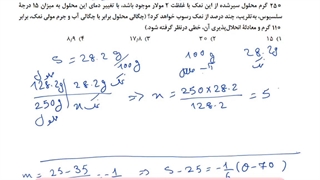 ۲۵۰ گرم محلول سیرشده از این نمک با غلظت ۲ مولار موجود باشد، با تغییر دمای این محلول به میزان ۱۵ درجهٔ
سلسیوس، به تقریب، چند درصد از نمک رسوب خواهد کرد؟ (چگالی محلول برابر با چگالی آب و جرم مولی نمک، برابر
۱۱۰ گرم و معادلهٔ انحلال‌پذیری آن، خطی درنظر گرفته شود.)
۱) ۱۵ ۲) ۳۰ ۳) ۱۷٫۸ ۴) ۸٫۹
S = 28.2 g/100g
128.2g | 28.2g | 100g
250g | n نمک | آب
محلول
⇒ n = 250×28.2/128.2 = 5
m = 25-35 -1 ⇒ S-25 = -1/6 (θ-70)